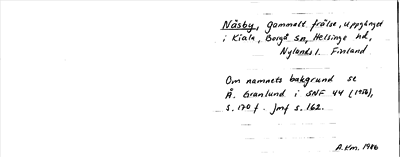 Näsby, gammalt frälse, uppgånget
i Kiala, Borgå sn, Helsinge hd,
Nylands l. Finland
Om namnets bakgrund se
Å. Granlund i SNF 44 (1956),
s. 170 f. jmf s. 162.
A.Km. 1986